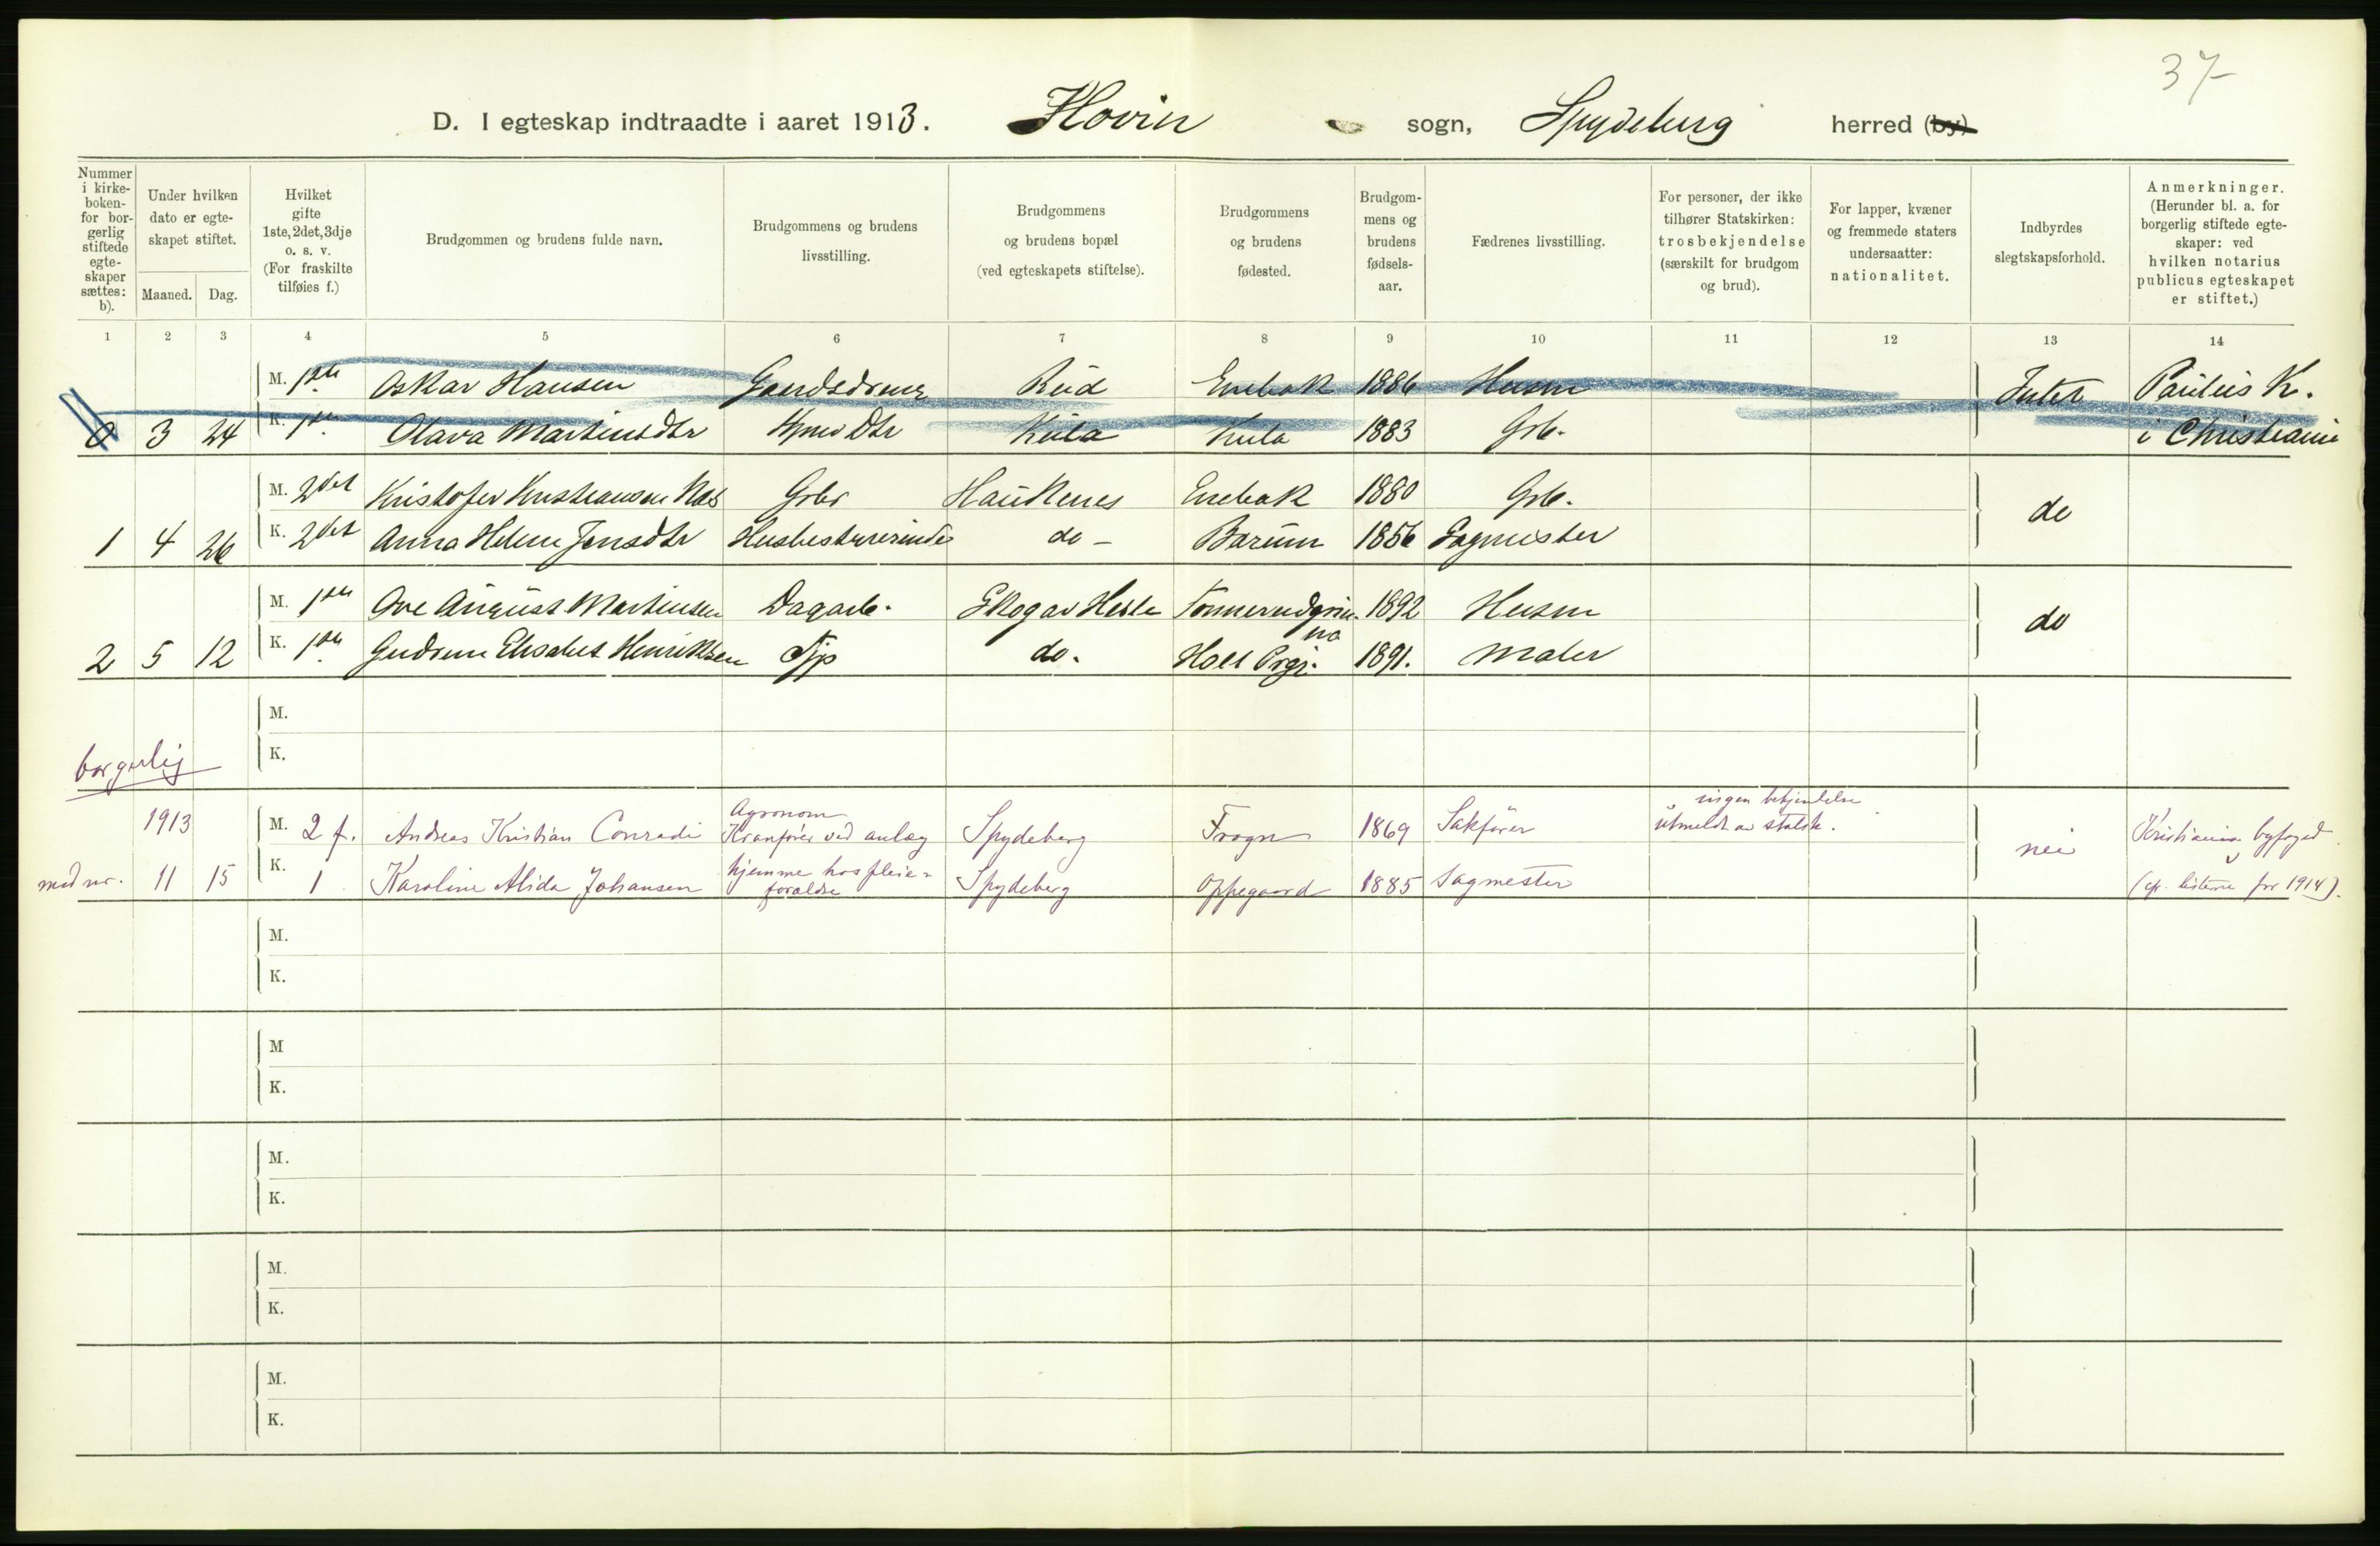 37
D. I egteskap indtraadte i aaret 1913. Hovin sogn, Spydeberg herred (by)
Nummer i kirke-boken- for bor-gerlig stiftede egte-skaper sættes: b).
Under hvilken dato er egte-skapet stiftet.
Maaned. Dag.
Hvilket gifte 1ste, 2det, 3dje o. s. v. (For fraskilte tilføies f.)
Brudgommen og brudens fulde navn.
Brudgommens og brudens livsstilling.
Brudgommens og brudens bopæl (ved egteskapets stiftelse).
Brudgommens og brudens fødested.
Brudgom-mens og brudens fødsels-aar.
Fædrenes livsstilling.
For personer, der ikke tilhører Statskirken: trosbekjendelse (særskilt for brudgom og brud).
For lapper, kvæner og fremmede staters undersaatter: nationalitet.
Indbyrdes slegtskapsforhold.
Anmerkninger. (Herunder bl. a. for borgerlig stiftede egte-skaper: ved hvilken notarius publicus egteskapet er stiftet.)
1 2 3 4 5 6 7 8 9 10 11 12 13 14
M. 1ste Oskar Hansen Gaardsdreng Rud Enebak 1886 Husm Intet Paulus K.
0 3 24 K. 1ste Olava Martinsdtr Kula Kula 1883 Grb. i Christiania
M. 2det Kristofer Kristiansen Næs Grbr Haukenes Enebak 1880 Grb. do
1 4 26 K. 2det Anna Helene Jensdtr Husbestyrerinde do - Bærum 1856 Sagmester
M. 1ste Ove August Martinsen Dagarb. Skogav Heste 1892 Husm do
2 5 12 K. 1ste Gudrun Elisabet Henriksen Tjp do. Holt Prgj. 1891. Maler
M.
K.
borgerlig
1913 M. 2 f. Andreas Kristian Conradi Agronom Kranfører ved anlæg Spydeberg Frogn 1869 Sakfører ingen bekjendelse utmeldt av statsk. nei Kristiania byfoged
med nr. 11 15 K. 1 Karoline Alida Johansen hjemme hos pleie-forældre Spydeberg Oppegaard 1885 Sagmester (cfr. listerne for 1914).
M.
K.
M
K.
M.
K.
M.
K.
M.
K.